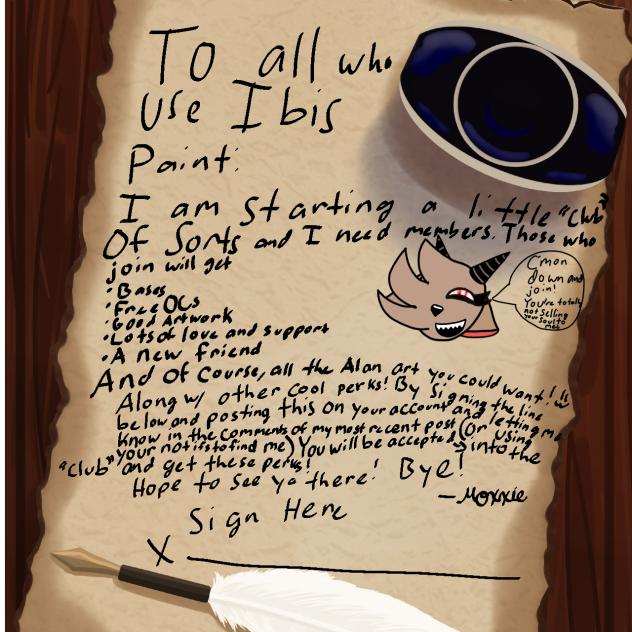 To all who
Use Ibis
Paint:
I am starting a little "Club"
Of Sorts and I need members. Those who
join will get
• Bases
• Free OCs
• Good Artwork
• Lots of love and support
• A new friend
C'mon
down and
join!
You're totally
not selling
your soul to
me!
And Of Course, all the Alan art you could want!!!
Along w/ other cool perks! By Signing the line
below and posting this on your account and (or letting me
know in the comments of my most recent post using
your notifs to find me) You will be accepted into the
"Club" and get these perks!
Hope to see ya there! Bye!
- Moxxie
Sign Here
X